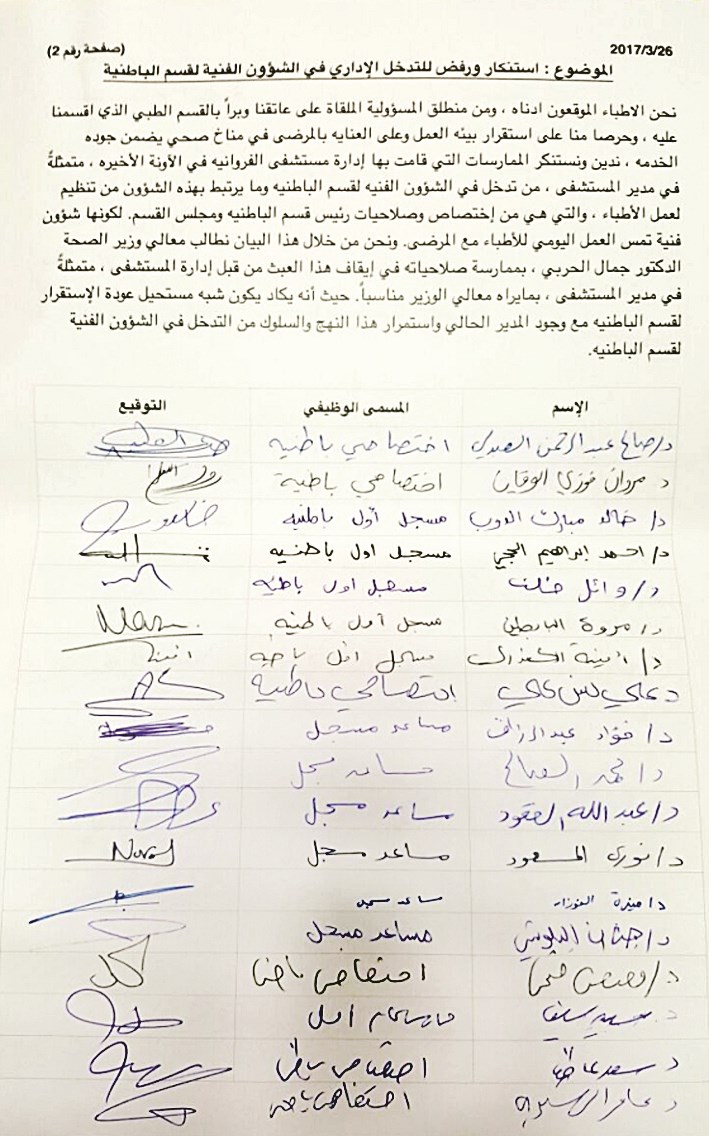 2017/3/26 (صفحة رقم 2)
الموضوع : استنكار ورفض للتدخل الإداري في الشؤون الفنية لقسم الباطنية
نحن الاطباء الموقعون ادناه ، ومن منطلق المسؤولية الملقاة على عاتقنا وبراً بالقسم الطبي الذي اقسمنا
عليه ، وحرصا منا على استقرار بيئه العمل وعلى العنايه بالمرضى في مناخ صحي يضمن جوده
الخدمه ، ندين ونستنكر الممارسات التي قامت بها إدارة مستشفى الفروانيه في الآونة الأخيره ، متمثلةً
في مدير المستشفى ، من تدخل في الشؤون الفنيه لقسم الباطنيه وما يرتبط بهذه الشؤون من تنظيم
لعمل الأطباء ، والتي هي من إختصاص وصلاحيات رئيس قسم الباطنيه ومجلس القسم. لكونها شؤون
فنية تمس العمل اليومي للأطباء مع المرضى. ونحن من خلال هذا البيان نطالب معالي وزير الصحة
الدكتور جمال الحربي ، بممارسة صلاحياته في إيقاف هذا العبث من قبل إدارة المستشفى ، متمثلةً
في مدير المستشفى ، بمايراه معالي الوزير مناسباً. حيث أنه يكاد يكون شبه مستحيل عودة الإستقرار
لقسم الباطنيه مع وجود المدير الحالي واستمرار هذا النهج والسلوك من التدخل في الشؤون الفنية
لقسم الباطنيه.
الإسم المسمى الوظيفي التوقيع
د/صالح عبدالرحمن اختصاصي باطنيه
د مروان فوزي الوقيان اختصاصي باطنية
د/ خالد مبارك مسجل أول باطنيه
د/ احمد ابراهيم الحجي مسجل اول باطنيه
د/ وائل خلف مسجل اول باطنيه
د/ مروة مسجل أول باطنيه
د/ أمينة مسجل اول باطنية امينة
د علي اختصاصي باطنية
د/ فؤاد عبدالرزاق مساعد مسجل
د/ محمد الصالح مساعد مسجل
د/ عبدالله العقود مساعد مسجل
د/ نوري المسعود مساعد مسجل
د/ منيرة الفوزان مساعد مسجل
د/ البلوشي مساعد مسجل
د/ اختصاصي باطنية
د.
د. سعد اختصاصي باطني
د. عامر اختصاصي باطنيه